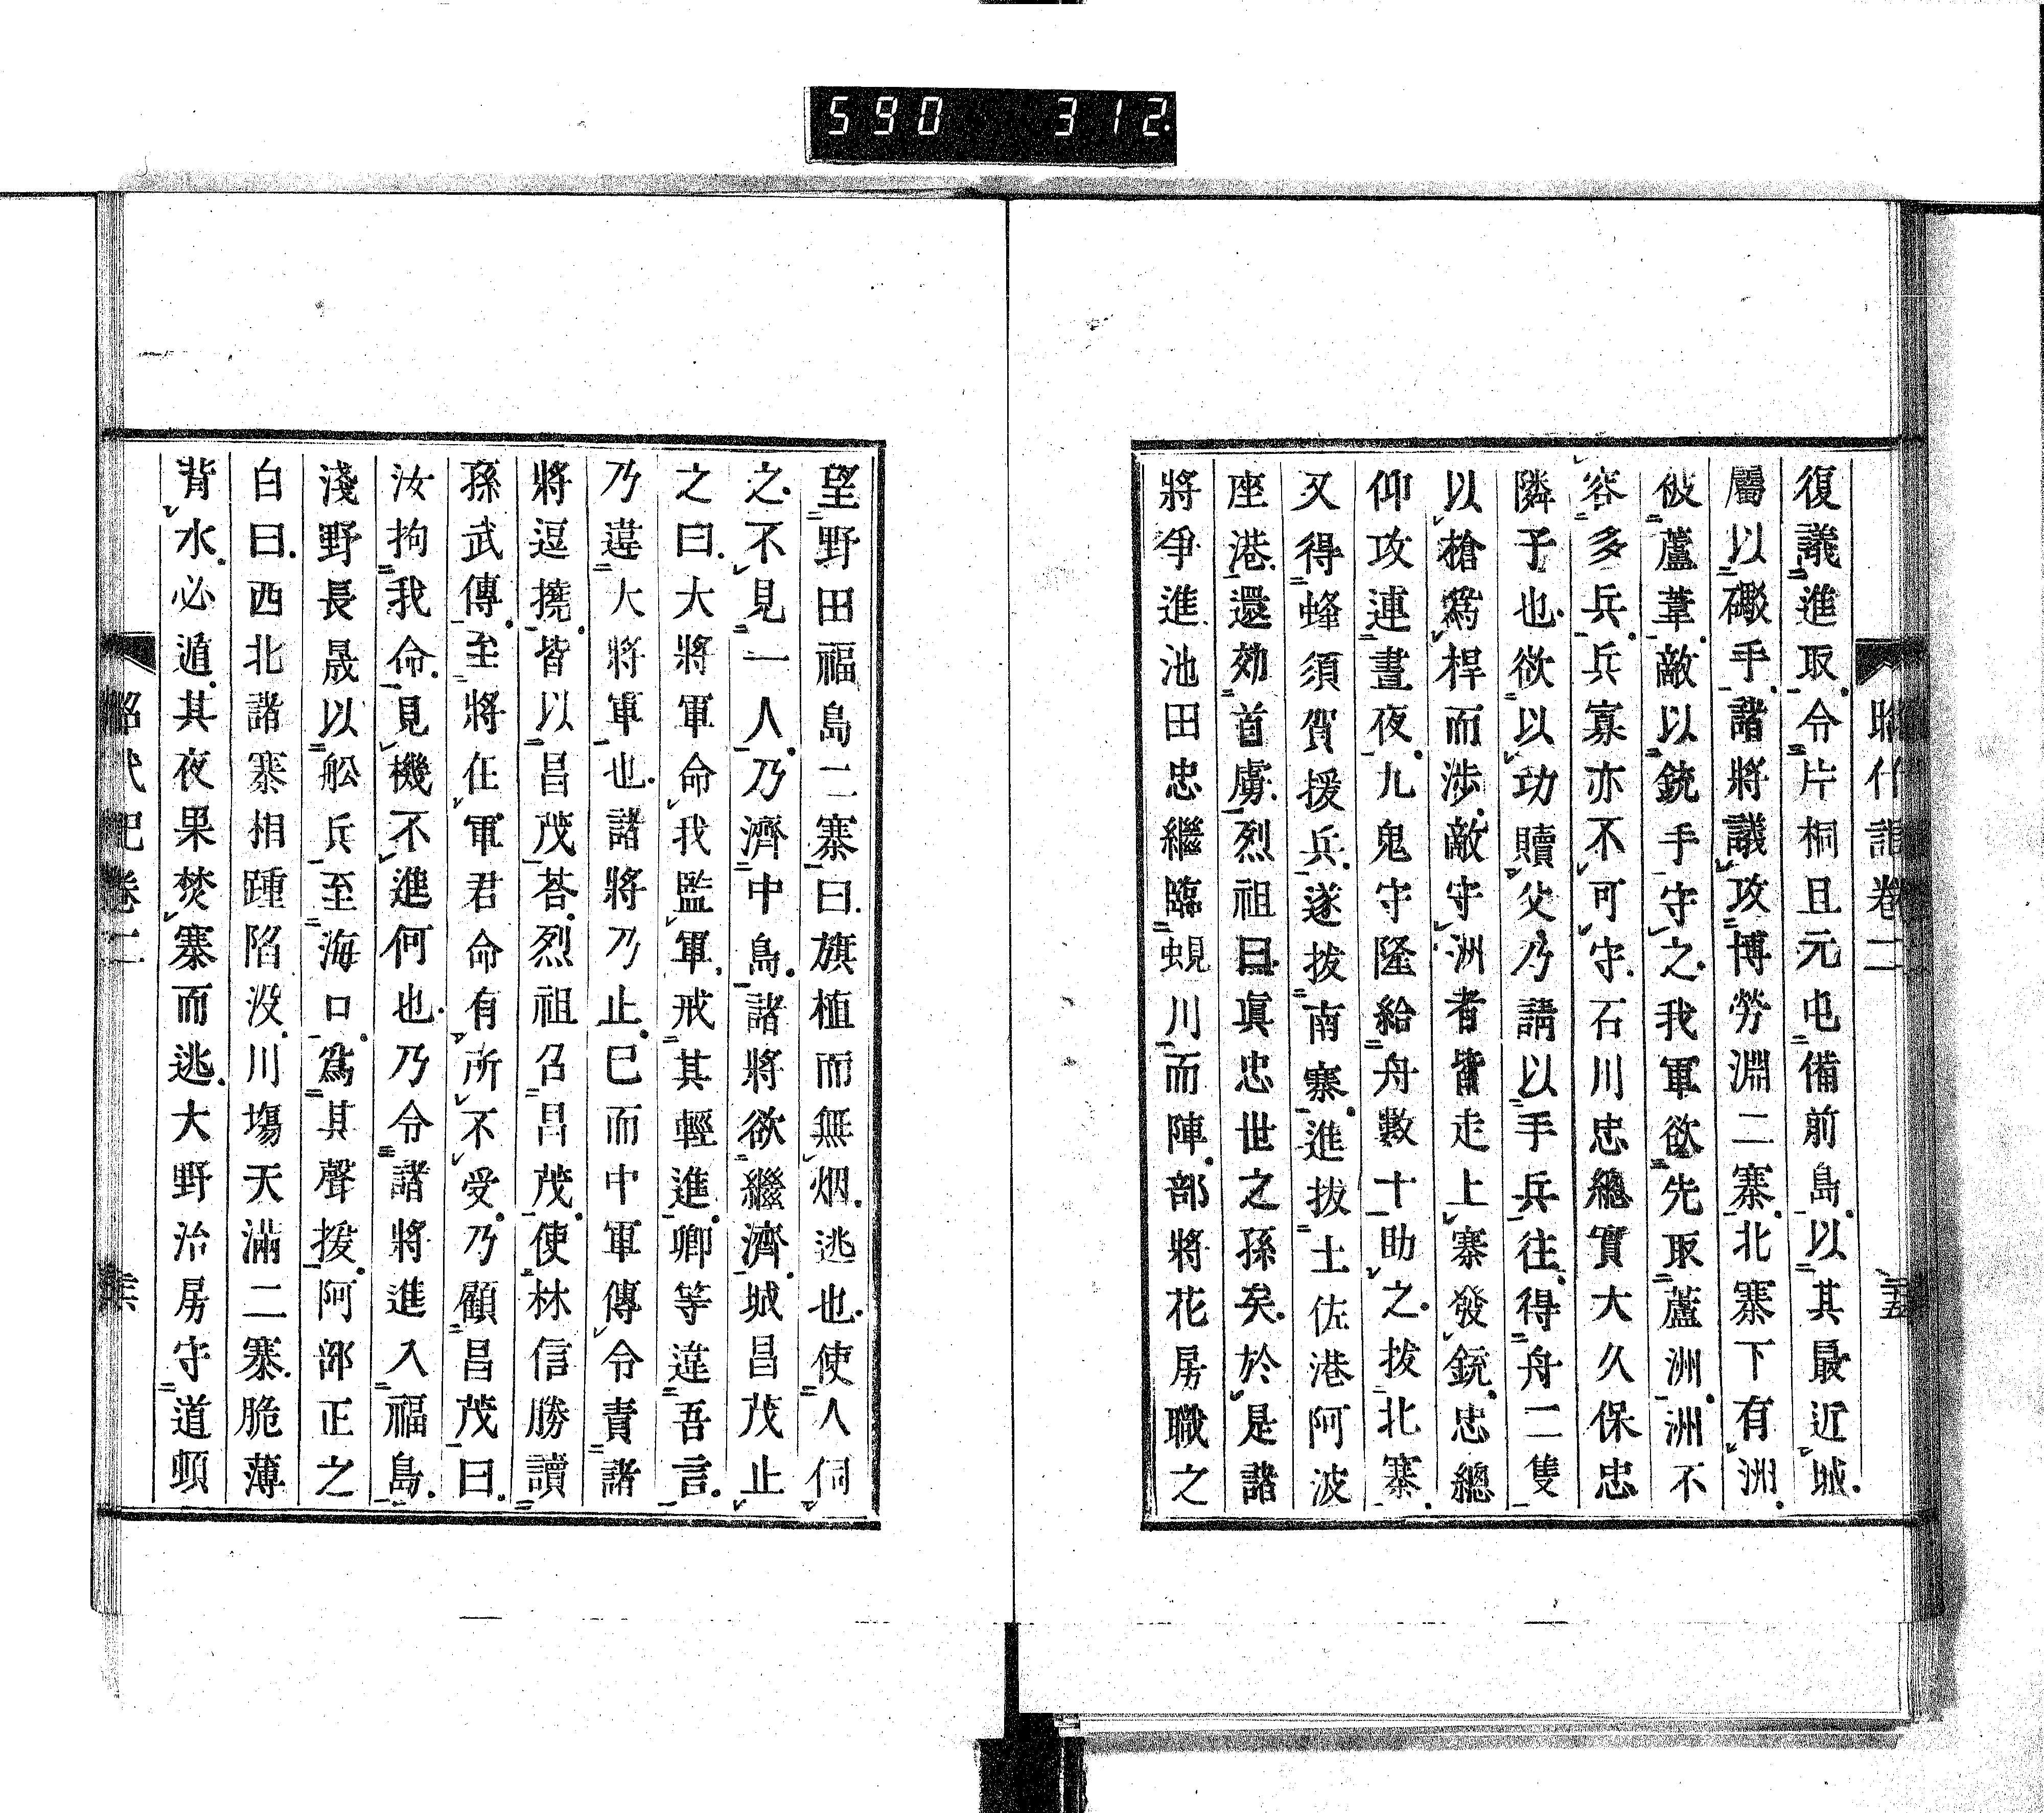 590 312.
卷二
復議進取令片桐且元屯備前島以其最近城
屬以礮手諸將議攻博勞淵二寨北寨下有洲
被蘆葦敵以銃手守之我軍欲先取蘆洲洲不
容多兵兵寡亦不可守石川忠總實大久保忠
隣子也欲以功贖父乃請以手兵往得舟二隻
以槍爲桿而涉敵守洲者皆走上寨發銃忠總
仰攻連晝夜九鬼守隆給舟數十助之拔北寨
又得蜂須賀援兵遂拔南寨進拔土佐港阿波
座港還効首虜烈祖曰眞忠世之孫矣於是諸
將爭進池田忠繼臨蜆川而陣部將花房職之
望野田福島二寨曰旗植而無烟逃也使人伺
之不見一人乃濟中島諸將欲繼濟城昌茂止
之曰大將軍命我監軍戒其輕進卿等違吾言
乃違大將軍也諸將乃止已而中軍傳令責諸
將逗撓皆以昌茂荅烈祖召昌茂使林信勝讀
孫武傳至將在軍君命有所不受乃顧昌茂曰
汝拘我命見機不進何也乃令諸將進入福島
淺野長晟以舩兵至海口爲其聲援阿部正之
白曰西北諸寨相踵陷沒川塲天滿二寨脆薄
背水必遁其夜果焚寨而逃大野治房守道頓
卷二